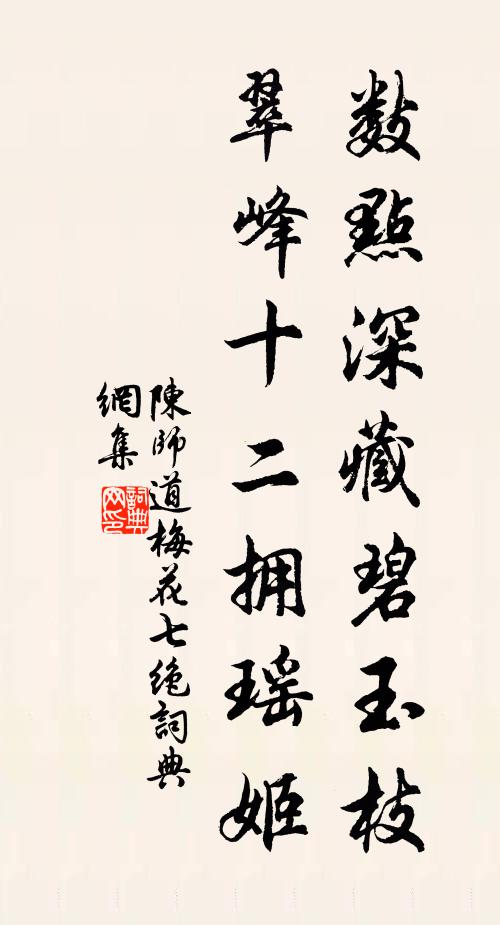 數點深藏碧玉枝
翠峰十二拥瑶姬
陳師道梅花七绝詞典
網集
詞典
网印